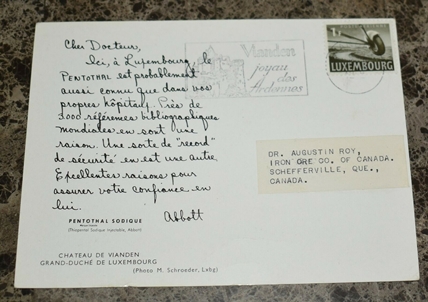 Cher Docteur,
Ici, à Luxembourg, le
PENTOTHAL est probablement
aussi connu que dans vos
propres hôpitaux. Près de
3000 références bibliographiques
mondiales en sont une
raison. Une sorte de "record"
de sécurité en est une autre.
Excellentes raisons pour
assurer votre confiance en
lui.
Abbott
PENTOTHAL SODIQUE
(Thiopental Sodique injectable, Abbott)
CHATEAU DE VIANDEN
GRAND-DUCHÉ DE LUXEMBOURG
(Photo M. Schroeder, Luxbg)
Vianden
joyau des
Ardennes
LUXEMBOURG
DR. AUGUSTIN ROY,
IRON ORE CO. OF CANADA.
SCHEFFERVILLE, QUE.,
CANADA.